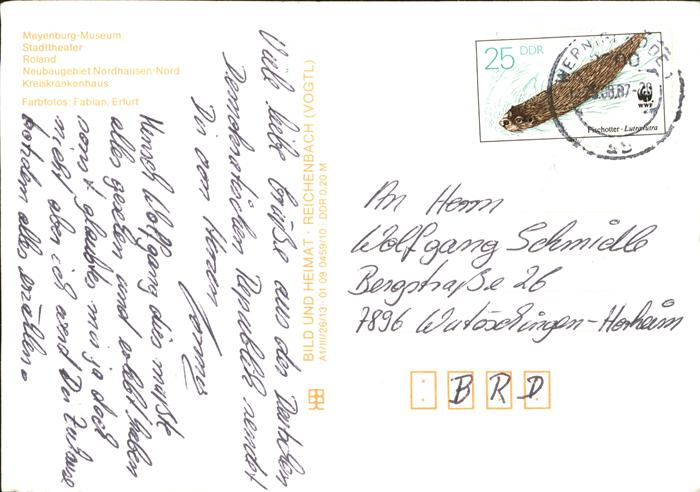 Meyenburg-Museum
Stadttheater
Roland
Neubaugebiet Nordhausen-Nord
Kreiskrankenhaus
Farbfotos: Fabian, Erfurt
Viele liebe Grüße aus der Deutschen
Demokratischen Republik sendet
Dir von Herzen
Mensch Wolfgang dies mußt
alles gesehen und erlebt haben
sonst glaubst mir ja doch
nicht aber ich werd Dir Zuhause
trotzdem alles erzählen.
BILD UND HEIMAT · REICHENBACH (VOGTL)
A1/III/26/13 · 01 09 0459/10 · DDR 0,20 M
25 DDR
WWF
Fischotter · Lutra lutra
.08.87
An Herrn
Wolfgang Schmidle
Bergstraße 26
7896 Wutöschingen-Horheim
BRD